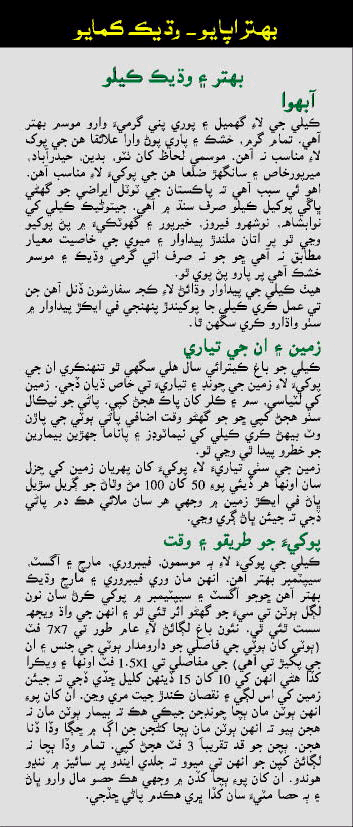 بهتر اپايو - وڌيڪ ڪمايو
بهتر ۽ وڌيڪ ڪيلو
آبهوا
ڪيلي جي لاءِ گهميل ۽ پوري پني گرميءَ وارو موسم بهتر
آهي. تمام گرم، خشڪ ۽ پاري پوڻ وارا علائقا هن جي پوک
لاءِ مناسب نہ آهن. موسمي لحاظ کان ٺٽو، بدين، حيدرآباد،
ميرپورخاص ۽ سانگهڙ ضلعا هن جي پوکيءَ لاءِ مناسب آهن.
اهو ئي سبب آهي تہ پاڪستان جي ٽوٽل ايراضي جو گهڻي
ڀاڱي پوکيل ڪيلو صرف سنڌ ۾ آهي. جيتوڻيڪ ڪيلي کي
نوابشاهہ، نوشهرو فيروز، خيرپور ۽ گهوٽڪيءَ ۾ پڻ پوکيو
وڃي ٿو پر اتان ملندڙ پيداوار ۽ ميوي جي خاصيت معيار
مطابق نہ آهي ڇو جو نہ صرف اتي گرمي وڌيڪ ۽ موسم
خشڪ آهي پر پارو پڻ پوي ٿو.
هيٺ ڪيلي جي پيداوار وڌائڻ لاءِ ڪجہ سفارشون ڏنل آهن جن
تي عمل ڪري ڪيلي جا پوکيندڙ پنهنجي في ايڪڙ پيداوار ۾
سٺو واڌارو ڪري سگهن ٿا.
زمين ۽ ان جي تياري
ڪيلي جو باغ ڪيترائي سال هلي سگهي ٿو تنهنڪري ان جي
پوکيءَ لاءِ زمين جي چونڊ ۽ تياريءَ تي خاص ڌيان ڏجي. زمين
کي لٽياسي، سم ۽ ڪلر کان پاڪ هجڻ کپي. پاڻي جو نيڪال
سٺو هجڻ کپي ڇو جو گهڻو وقت اضافي پاڻي ٻوٽي جي پاڙن
وٽ بيهڻ ڪري ڪيلي کي نيماٽوڊز ۽ پاناما جهڙين بيمارين
جو خطرو پيدا ٿي وڃي ٿو.
زمين جي سٺي تياريءَ لاءِ پوکيءَ کان پهريان زمين کي چزل
سان اونها هر ڏيئي پوءِ 50 کان 100 مڻ وٿاڻ جو ڳريل سڙيل
ڀاڻ في ايڪڙ زمين ۾ وجهي هر سان ملائي هڪ دم پاڻي
ڏجي تہ جيئن ڀاڻ ڳري وڃي.
پوکيءَ جو طريقو ۽ وقت
ڪيلي جي پوکيءَ لاءِ ٻہ موسمون، فيبروري، مارچ ۽ آگسٽ،
سيپٽمبر بهتر آهن. انهن مان وري فيبروري ۽ مارچ وڌيڪ
بهتر آهن ڇوجو آگسٽ ۽ سيپٽيمبر ۾ پوکي ڪرڻ سان نون
لڳل ٻوٽن تي سيءَ جو گهڻو اثر ٿئي ٿو ۽ انهن جي واڌ ويجهہ
سست ٿئي ٿي. نئون باغ لڳائڻ لاءِ عام طور تي 7x7 فٽ
(ٻوٽي کان ٻوٽي جي فاصلي جو دارومدار ٻوٽي جي جنس ۽ ان
جي پکيڙ تي آهي) جي مفاصلي تي 1.5x1 فٽ اونها ۽ ويڪرا
کڏا هڻي انهن کي 10 کان 15 ڏينهن کليل ڇڏي ڏجي تہ جيئن
زمين کي اس لڳي ۽ نقصان ڪندڙ جيت مري وڃن. ان کان پوءِ
انهن ٻوٽن مان ٻچا چونڊجن جيڪي هڪ تہ بيمار ٻوٽن مان نہ
هجن ٻيو تہ انهن ٻوٽن مان ٻچا کڻجن جن اڳ ۾ چڱا وڏا ڏنا
هجن. ٻچن جو قد تقريباً 3 فٽ هجڻ کپي. تمام وڏا ٻچا نہ
لڳائڻ کپن جو انهن تي ميوو تہ جلدي ايندو پر سائيز ۾ ننڍو
هوندو. ان کان پوءِ ٻچا کڏن ۾ وجهي هڪ حصو مال وارو ڀاڻ
۽ ٻہ حصا مٽيءَ سان کڏا ڀري هڪدم پاڻي ڇڏجي.